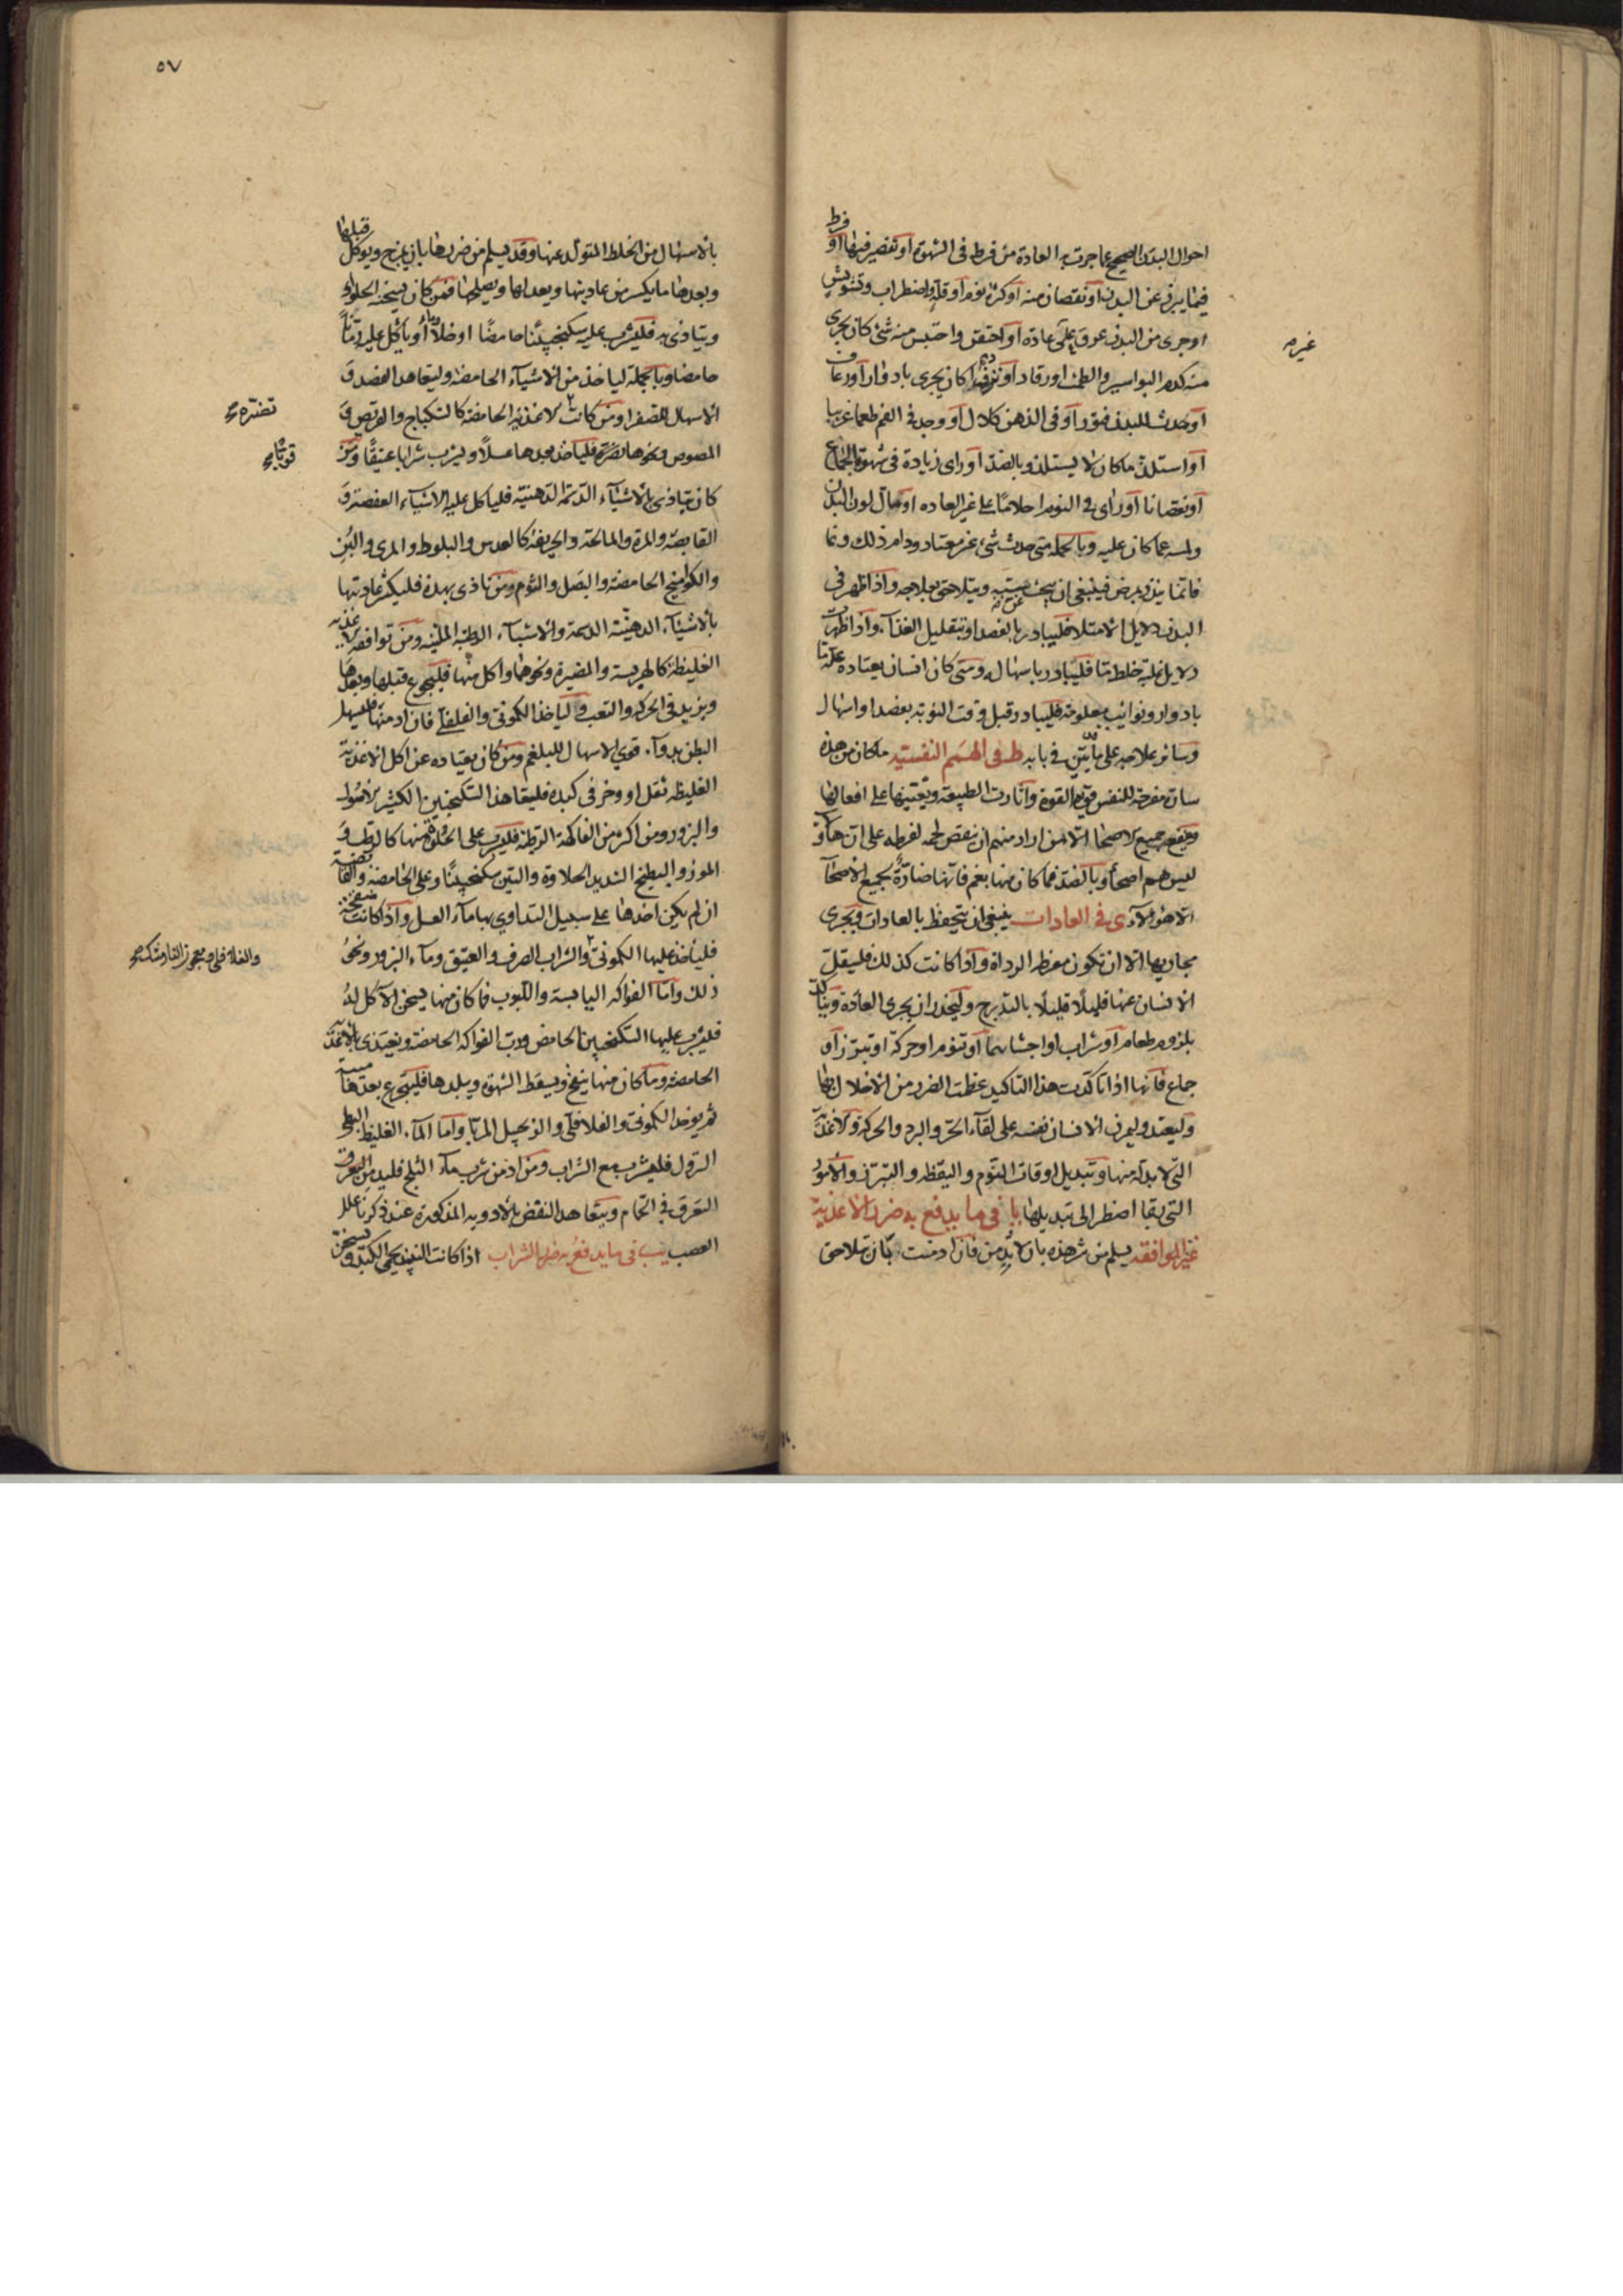 احوال البدن الصحيح عما جرت به العادة من فرط فى الشهوة او تقصير فيها او فرط
فيما يبرز عن البدن او نقصان منه او كثرة نوم او قلة واضطراب وتشويش
او جرى من البدن عرق على عادة او احتقن واحتبس منه شئ كان يجرى
غيره
منه كدم البواسير والطمث او رقاد او نزف دم كان يجرى بادوار او رعاف
او حدث للبدن فتور او فى الذهن كلال او وجد فى الفم طعما غريبا
او استلذ ما كان لا يستلذ وبالضد او راى زيادة فى شهوة الجماع
او نقصانا او راى فى النوم احلاما على غير العاده او حال لون البدن
ولمسه عما كان عليه وبالجملة متى حدث شئ غير معتاد ودام ذلك ونما
فانما ينذر بمرض فينبغى ان يبحث عن سببه ويتلاحق بعلاجه واذا ظهر فى
البدن دلايل الامتلا فليبادر بالفصد او بتقليل الغذآء واذا ظهرت
دلايل غلبة خلط ما فليبادر باسهاله ومتى كان انسان يعتاده علة ما
بادوار ونوائيب معلومة فليبادر قبل وقت النوبة بفصد او اسهال
وسائر علاجه على ما يتبين فى بابه ط فى الهمم النفسية ما كان من هذه
سان مفرحة للنفس فتقوى القوة واثارت الطبيعة ويعينها على افعالها
وينفع جميع الاصحا الا من اراد منهم ان ينقص لحمه لفرطه على ان هاؤلا
ليس هم اصحآ وبالضد فما كان منها بغم فانها ضارة بجميع الاصحآ
الا هؤلآء ى فى العادات ينبغى ان يتحفظ بالعادات ويجرى
مجاريها الا ان تكون مفرطه الرداة واذا كانت كذلك فليتنقل
الانسان عنها قليلًا قليلًا بالتدريج وليحذر ان يجرى العادة ويتاكد
بلزوم طعام او شراب او اجتنابهما او تنوم او حركة او تبرز او
جماع فانها اذا تاكدت هذا التاكيد عظمت الضرر من الاخلال بها
وليعتد وليمرن الانسان نفسه على لقآء الحر والبرد والحركة والاغذية
التى لا بد له منها وتبديل اوقات النوم واليقظه والتبرز والامور
التى بقا اضطر الى تبديلها يا فى ما يدفع به ضرر الاغذية
غير الموافقه يسلم من شر هذه بان لا يدمن فان ادمنت بان تلاحق
٥٧
بالاسهال من الخلط المتولد عنها وقد يسلم من ضررها بان يمزج ويوكل قبلها
وبعدها ما يكسر من عاديتها ويعدلها ويصلحها فمن كان يسخنه الحلواء
ويتاذى به فليشرب عليه سكنجبينًا حامضًا او خلا او ياكل عليه رمانا
حامضا وبالجملة لياخذ من الاشيآء الحامضه وليتعاهد الفصد و
الاسهال للصفرا ومن كانت الاغذية الحامضه كالسكباج والقريص و
تضره
المصوص ونحوها تضره فلياخذ بعدها عسلًا ويشرب شرابا عتيقًا ومن
قويًا
كان يتاذى بالاشيآء الدسمة الدهنية فلياكل عليه الاشيآء العفصة و
القابضة والمرة والمالحة والحريفة كالعدس والبلوط والمرى والبن
والكواميخ الحامضة والبصل والثوم ومن تاذى بهذه فليكسر عاديتها
بالاشيآء الدهنية الدسمة والاشيآء الرطبة الملينه ومن توافقه الاغذيه
الغليظة كالهريسة والمضيرة ونحوهما واكل منها فليجوع قبلها وبعدها
ويزيد فى الحركة والتعب ولياخذ الكمونى والفلافلى فان ادمنها فليسهل
البطن بدوآء قوي الاسهال للبلغم ومن كان يعتاده عن اكل الاغذية
الغليظه ثقل او وخز فى كبده فليتعاهد السكنجبين الكثير الاصول
والبزور ومن اكثر من الفاكهة الرطبة فليشرب على الحلوة منها كالرطب و
الموز والبطيخ الشديد الحلاوة والتين سكنجبينًا وعلى الحامضة والقابضة
ان لم يكن اخذها على سبيل التداوي بها مآء العسل واذا كانت منفخة
فلياخذ عليها الكمونى والشراب الصرف والعتيق ومآء البزور ونحو
ذلك واما الفواكه اليابسة واللبوب فما كان منها يسخن الآكل له
فليشرب عليها السكنجبين الحامض ورب الفواكه الحامضة ويغتذى بالاغذية
الحامضه وما كان منها ينفخ ويسقط الشهوة ويبلدها فليجوع بعدها
ثم يوخذ الكمونى والفلافلى والزنجبيل المربا واما المآء الغليظ البطى
النزول فليشرب مع الشراب ومن ادمن شرب مآء الثلج فليدمن التعرق
التعرق فى الحمام ويتعاهد النفض بالادويه المذكورة عند ذكرنا علل
العصب يب فى ما يدفع به ضرر الشراب اذا كانت النبيذ يحمى الكبد ويسخن